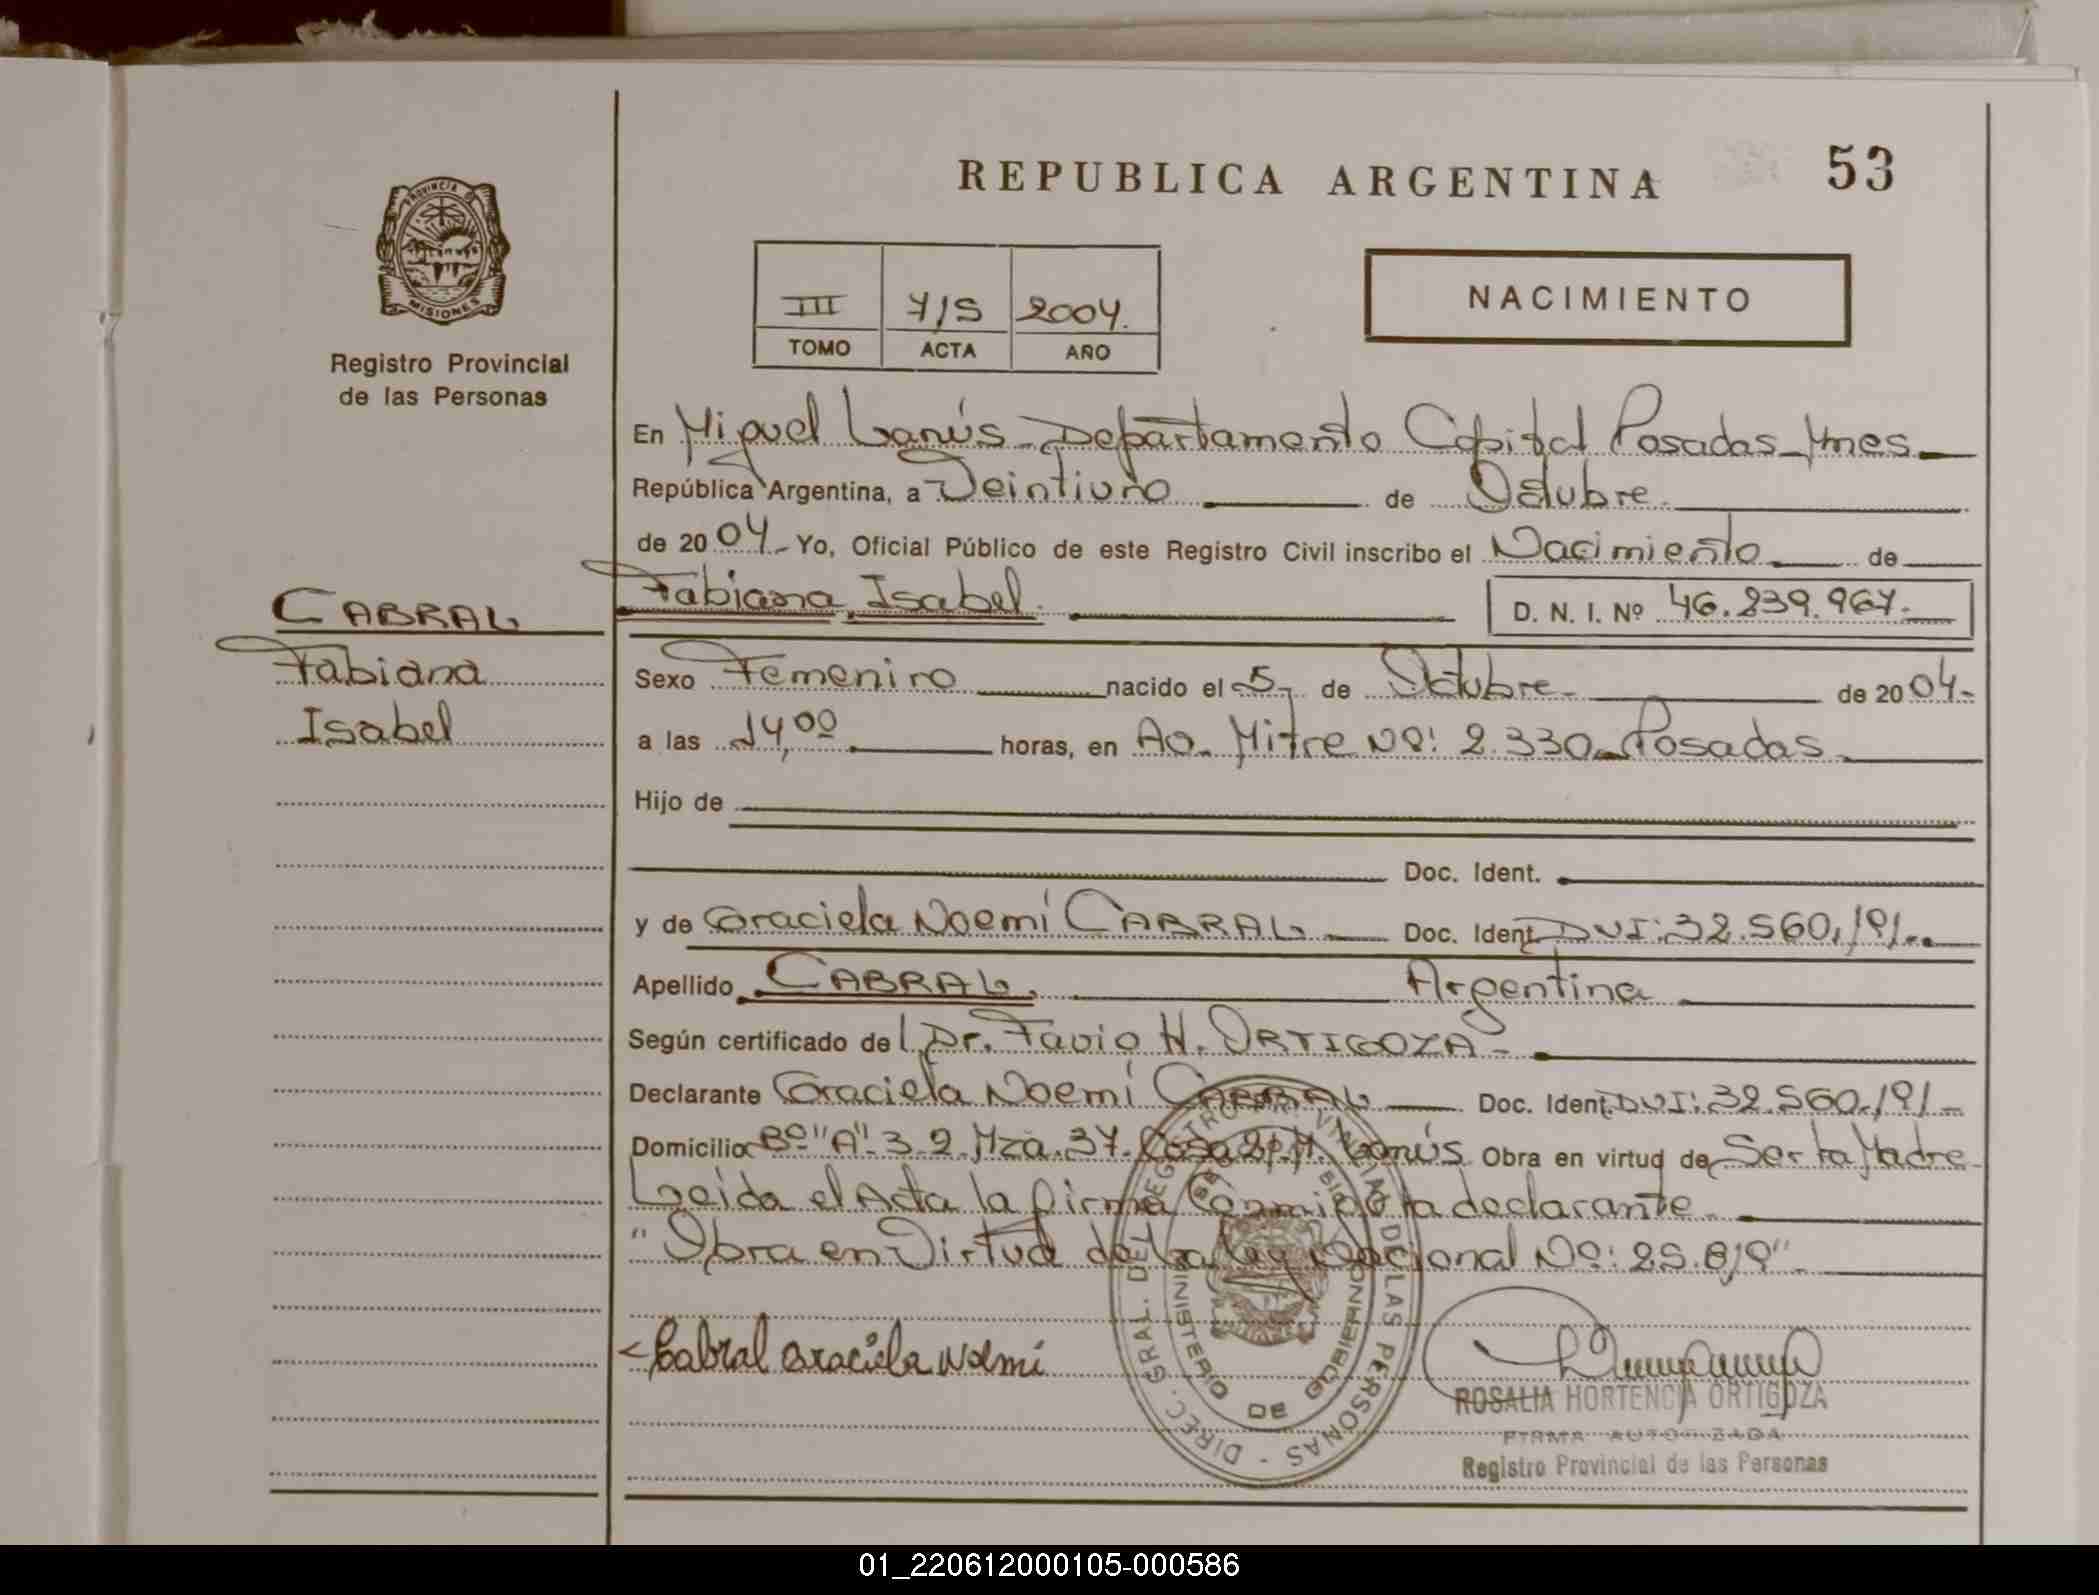 REPUBLICA ARGENTINA
53
PROVINCIA D
MISIONES
Registro Provincial
de las Personas
III 715 2004.
TOMO ACTA AÑO
NACIMIENTO
En Miguel Lanús - Departamento Capital Posadas - Mnes.
República Argentina, a Veintiuno de Octubre.
de 2004 - Yo, Oficial Público de este Registro Civil inscribo el Nacimiento de
Fabiana Isabel. D. N. I. Nº 46.239.967.
CABRAL
Fabiana
Isabel
Sexo Femenino nacido el 5 de Octubre - de 2004.-
a las 14,00 horas, en Av. Mitre Nº: 2.330 - Posadas.
Hijo de
Doc. Ident.
y de Graciela Noemí CABRAL - Doc. Ident. DNI: 32.560.191..
Apellido CABRAL. Argentina
Según certificado del Dr. Favio H. ORTIGOZA -
Declarante Graciela Noemí CABRAL Doc. Ident. DNI: 32.560.191 -
Domicilio Bº "A"-3-2. Mza. 37. Casa 21 M. Lanús Obra en virtud de Ser la Madre -
Leida el Acta la firma Conmigo la declarante.
"Obra en Virtud de la Ley Nacional Nº: 25.819".
Cabral Graciela Noemi
DIREC. GRAL. DEL REGISTRO PROVINCIAL DE LAS PERSONAS -
MINISTERIO DE GOBIERNO
ROSALIA HORTENCIA ORTIGOZA
FIRMA AUTORIZADA
Registro Provincial de las Personas
01_220612000105-000586